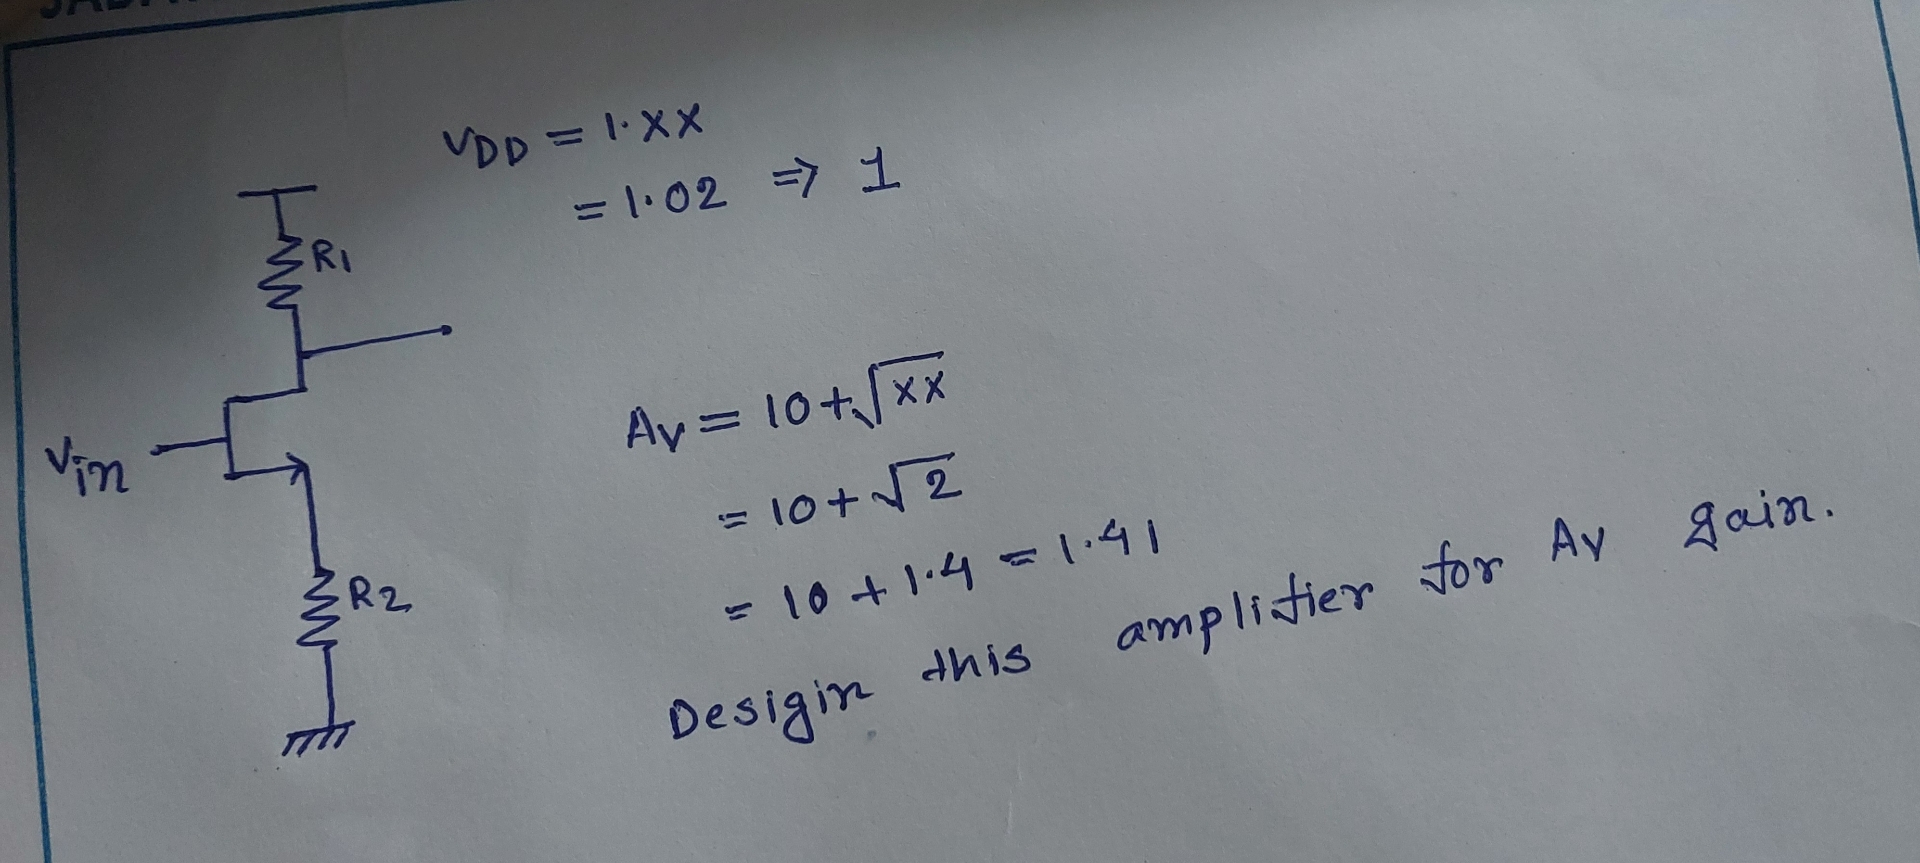 VDD = 1.XX
= 1.02 => 1
R1
Av = 10+√XX
Vin
= 10+√2
= 10 + 1.4 = 1.41
R2
Desigin this amplifier for Av gain.